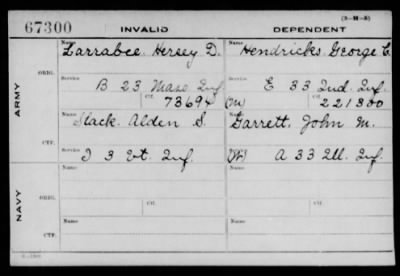 67300 INVALID DEPENDENT (3-M-8)
ARMY
ORIG.
Name Larrabee Hersey D. Name Hendricks George C.
Service B 23 Mass Inf. Service E 33 Ind. Inf.
Ctf. 73694 (M) Ctf. 221300
CTF.
Name Slack Alden S. Name Garrett, John M.
Service I 3 Vt. Inf. (W) A 33 Ill. Inf.
NAVY
ORIG.
Name Name
Ctf. Ctf.
CTF.
Name Name